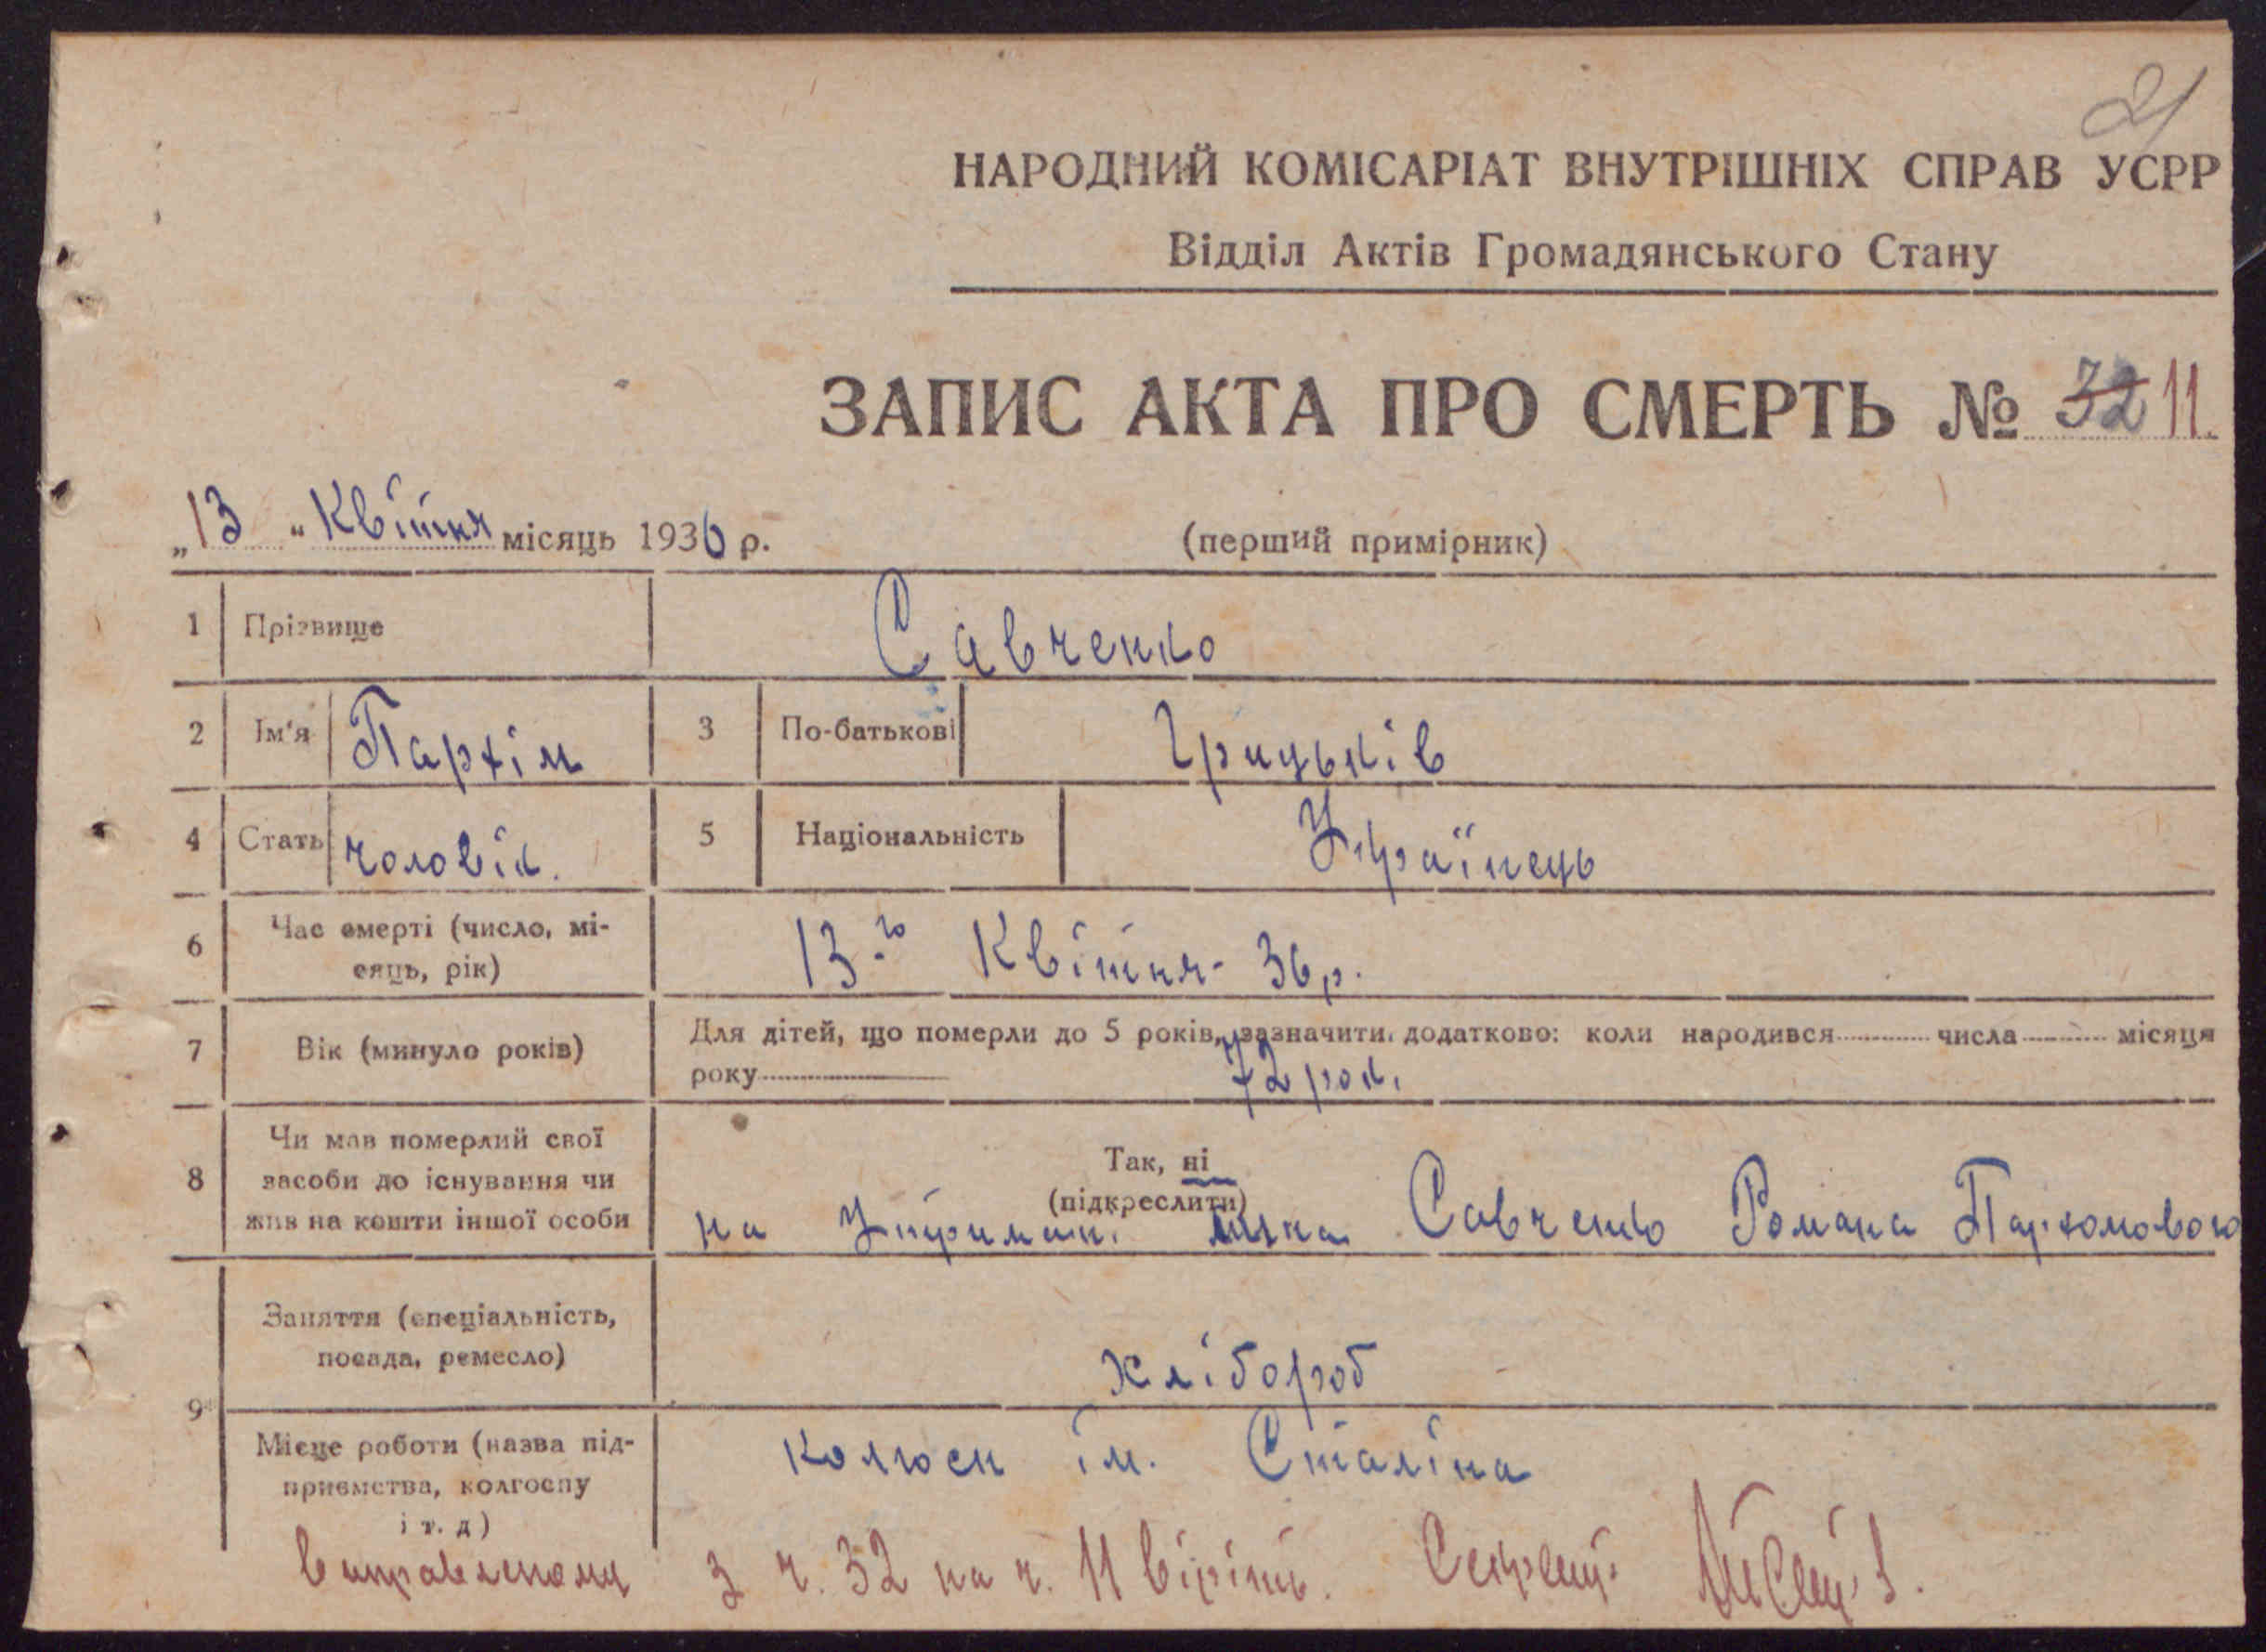 21
НАРОДНИЙ КОМІСАРІАТ ВНУТРІШНІХ СПРАВ УСРР
Відділ Актів Громадянського Стану
ЗАПИС АКТА ПРО СМЕРТЬ № 32 11.
„13" Квітня місяць 1936 р. (перший примірник)
1 Прізвище Савченко
2 Ім'я Пархім 3 По-батькові Грицьків
4 Стать чоловік. 5 Національність Українець
6 Час смерті (число, мі-
сяць, рік) 13-го Квітня- 36 р.
7 Вік (минуло років) Для дітей, що померли до 5 років, зазначити додатково: коли народився числа місяця
року 72 рок.
8 Чи мав померлий свої
засоби до існування чи
жив на кошти іншої особи
Так, ні
(підкреслити)
на Утриман. сина Савченко Романа Пархомового
9 Заняття (спеціальність,
посада, ремесло) хлібороб
Місце роботи (назва під-
приємства, колгоспу
і т. д) Колгосп ім. Сталіна
виправленому з ч. 32 на ч. 11 вірить. Секрет.